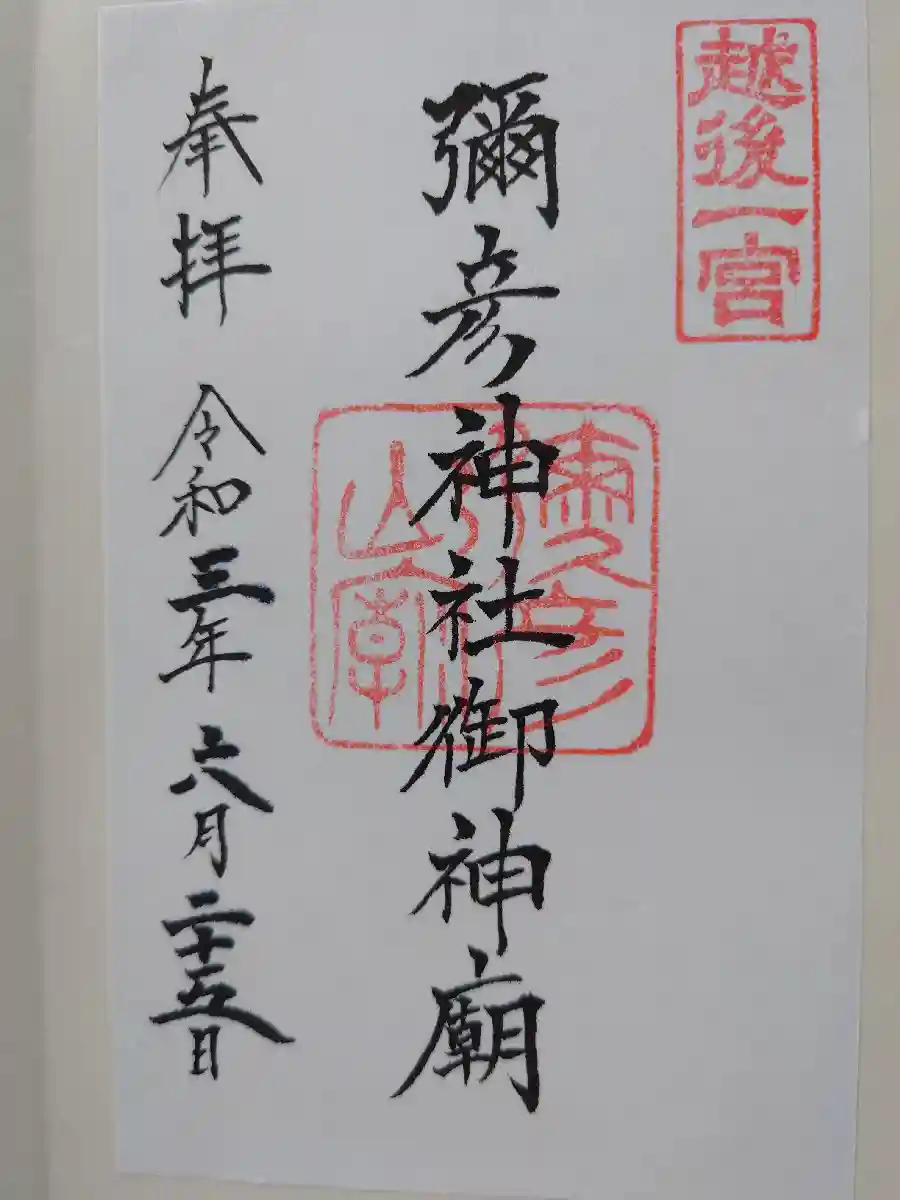 越後一宮
彌彦神社御神廟
奉拝 令和三年六月二十五日